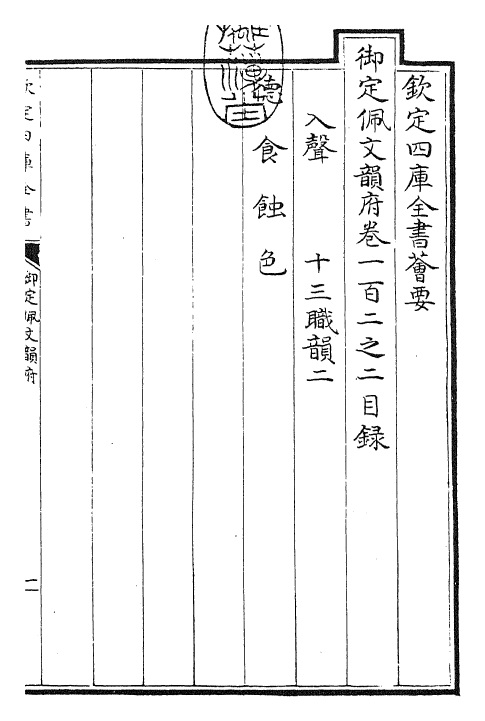 欽定四庫全書薈要
御定佩文韻府卷一百二之二目録
入聲　十三職韻二
德　食　蝕　色
欽定四庫全書
御定佩文韻府
一